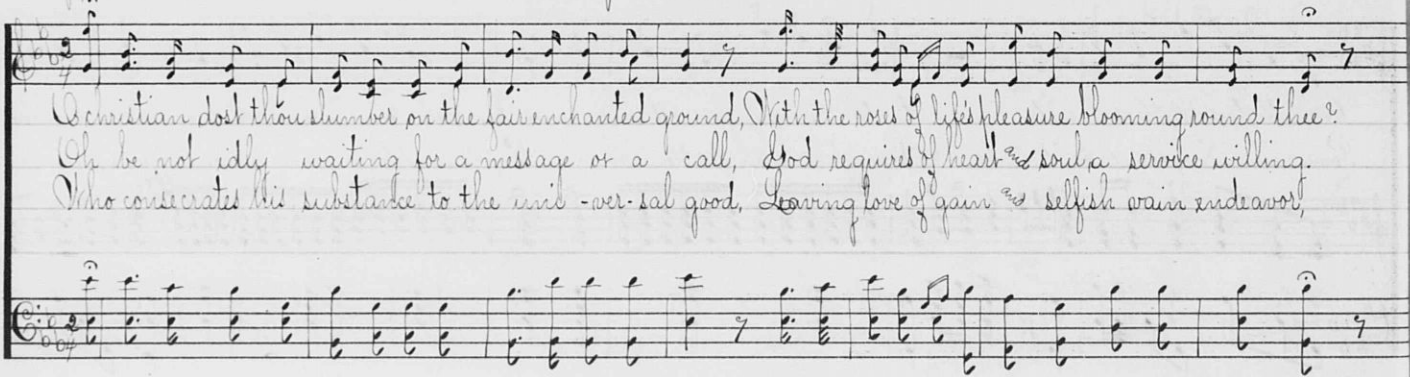 O christian dost thou slumber on the fair enchanted ground, With the roses of life's pleasure blooming round thee?
Oh be not idly waiting for a message or a call, God requires of heart and soul, a service willing.
Who consecrates his substance to the uni-ver-sal good, Leaving love of gain and selfish vain endeavor,